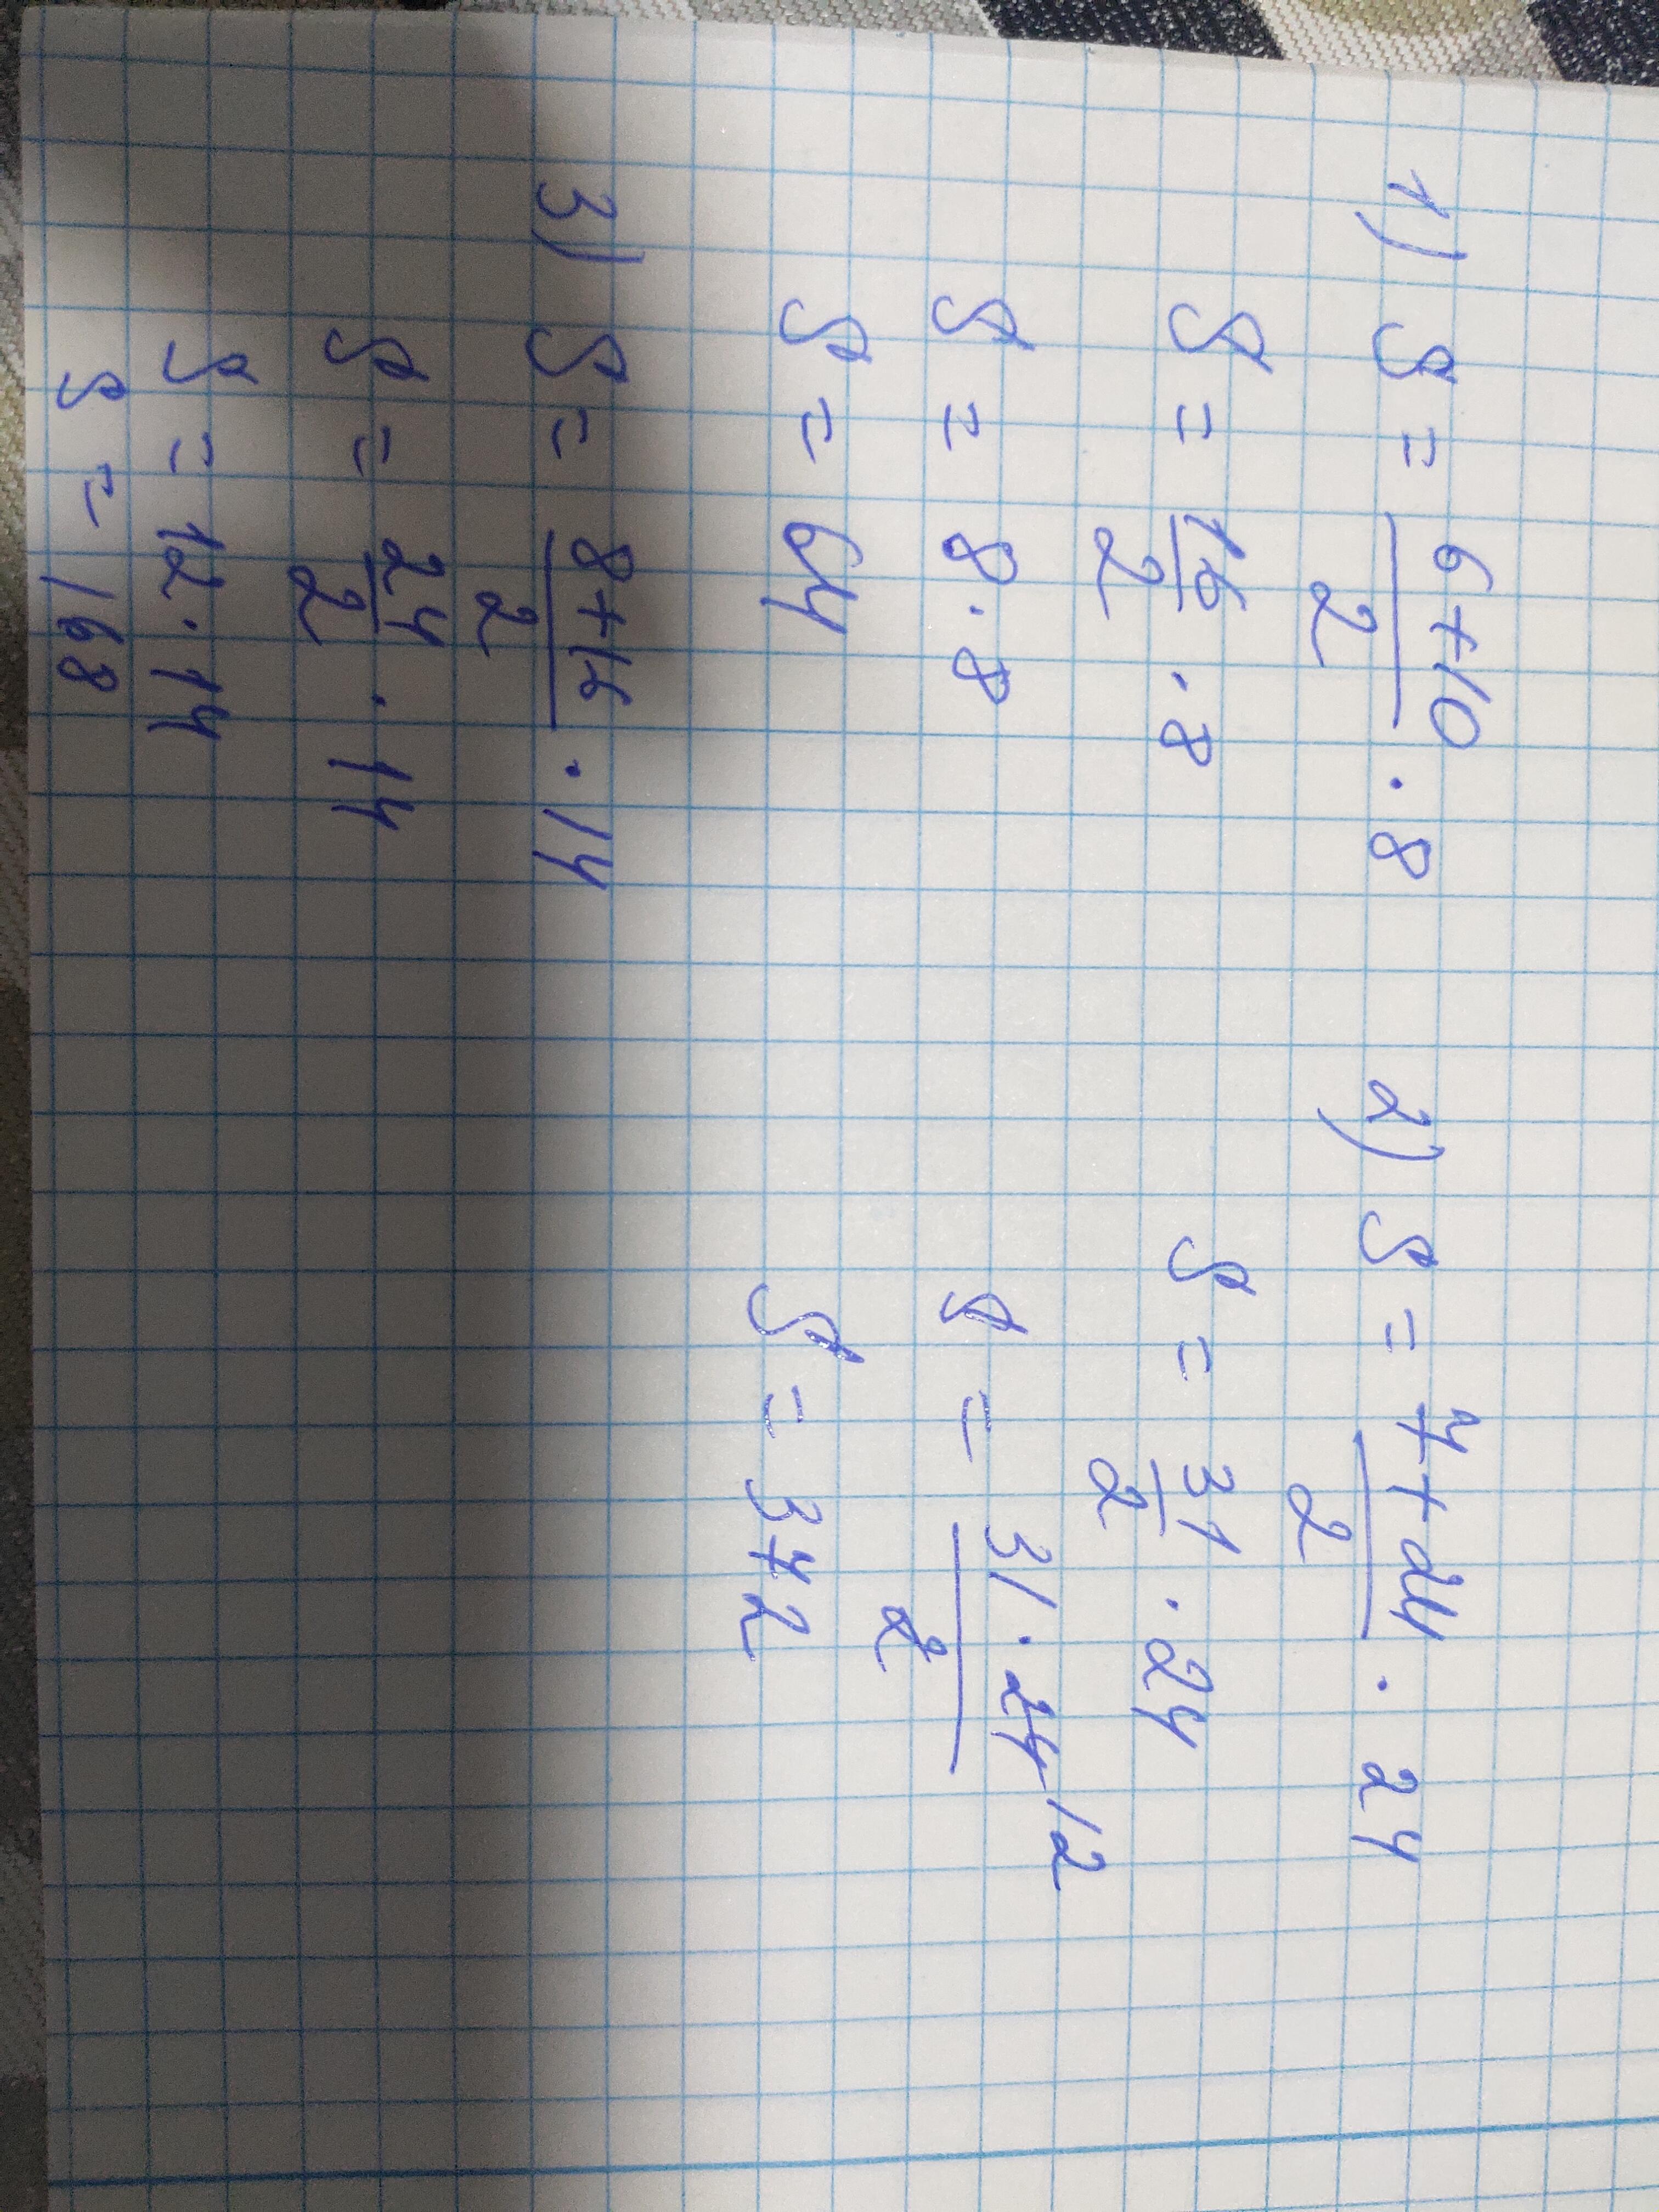 1) S = (6+10)/2 · 8
S = 16/2 · 8
S = 8 · 8
S = 64
2) S = (7+24)/2 · 24
S = 31/2 · 24
S = (31 · 24)/2 12
S = 372
3) S = (8+16)/2 · 14
S = 24/2 · 14
S = 12 · 14
S = 168